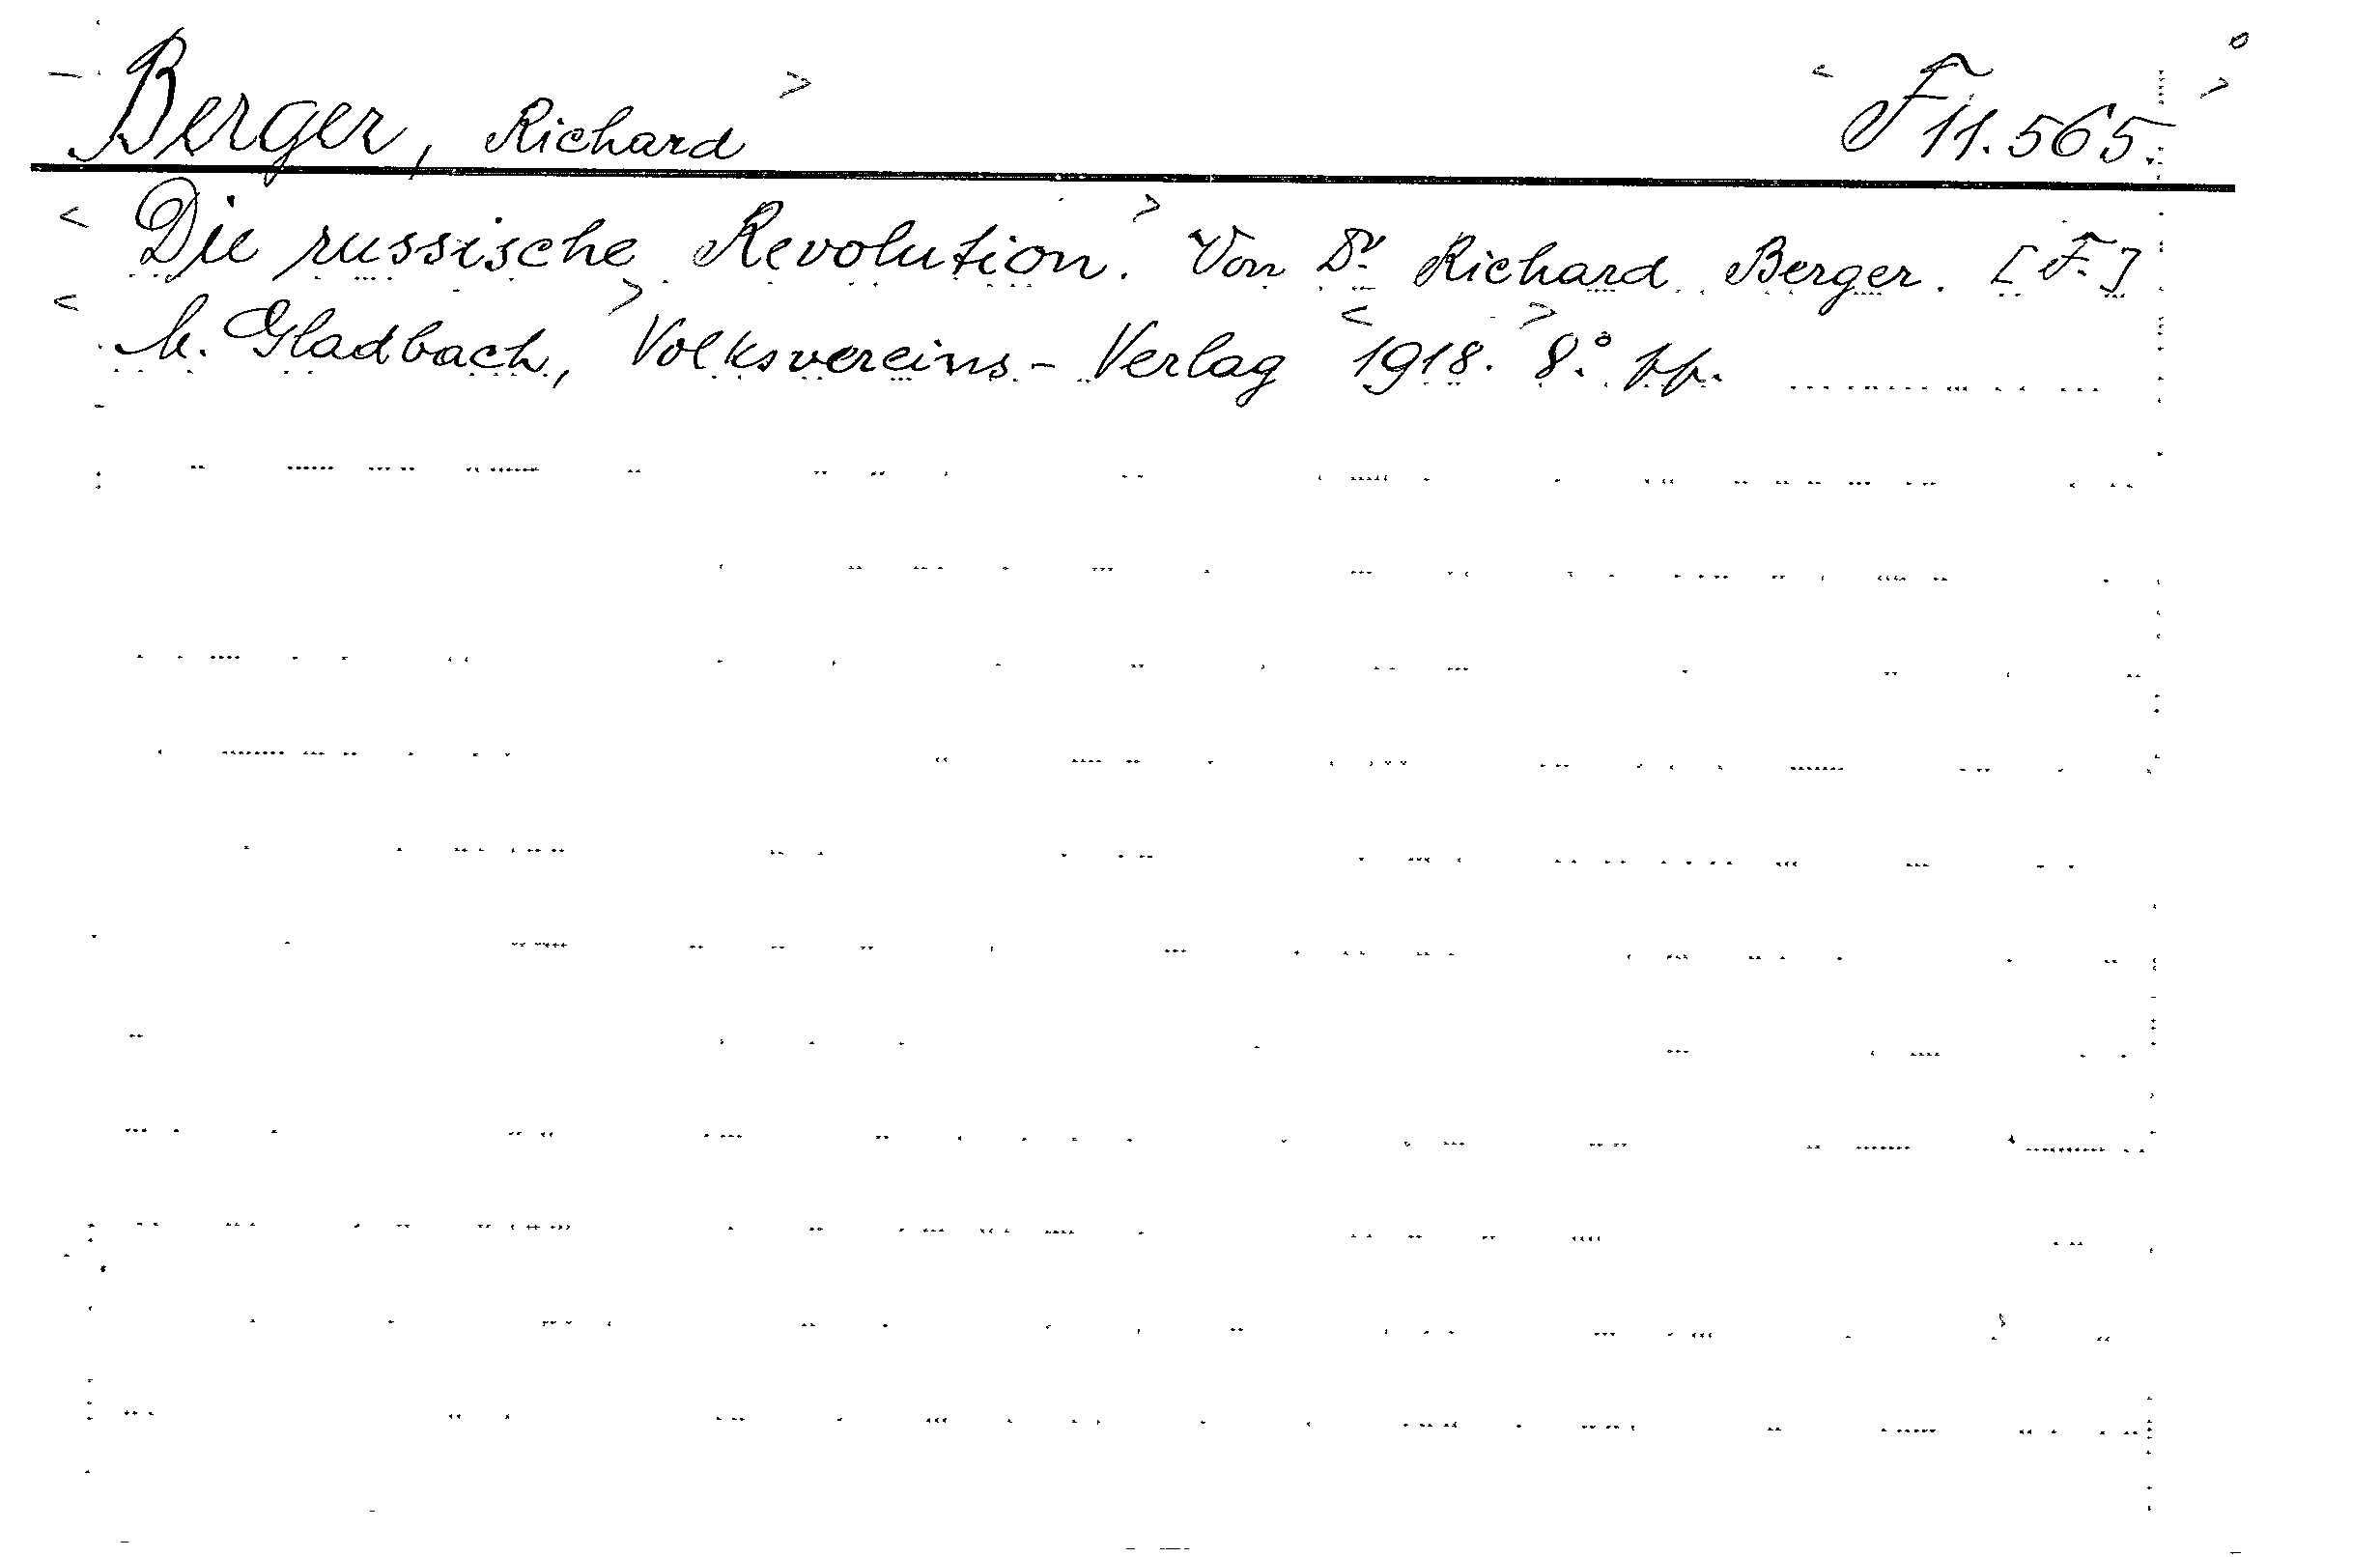 Berger, Richard F 11.565.
Die russische Revolution. Von Dr. Richard Berger. [F.]
M. Gladbach, Volksvereins-Verlag 1918. 8° pp.